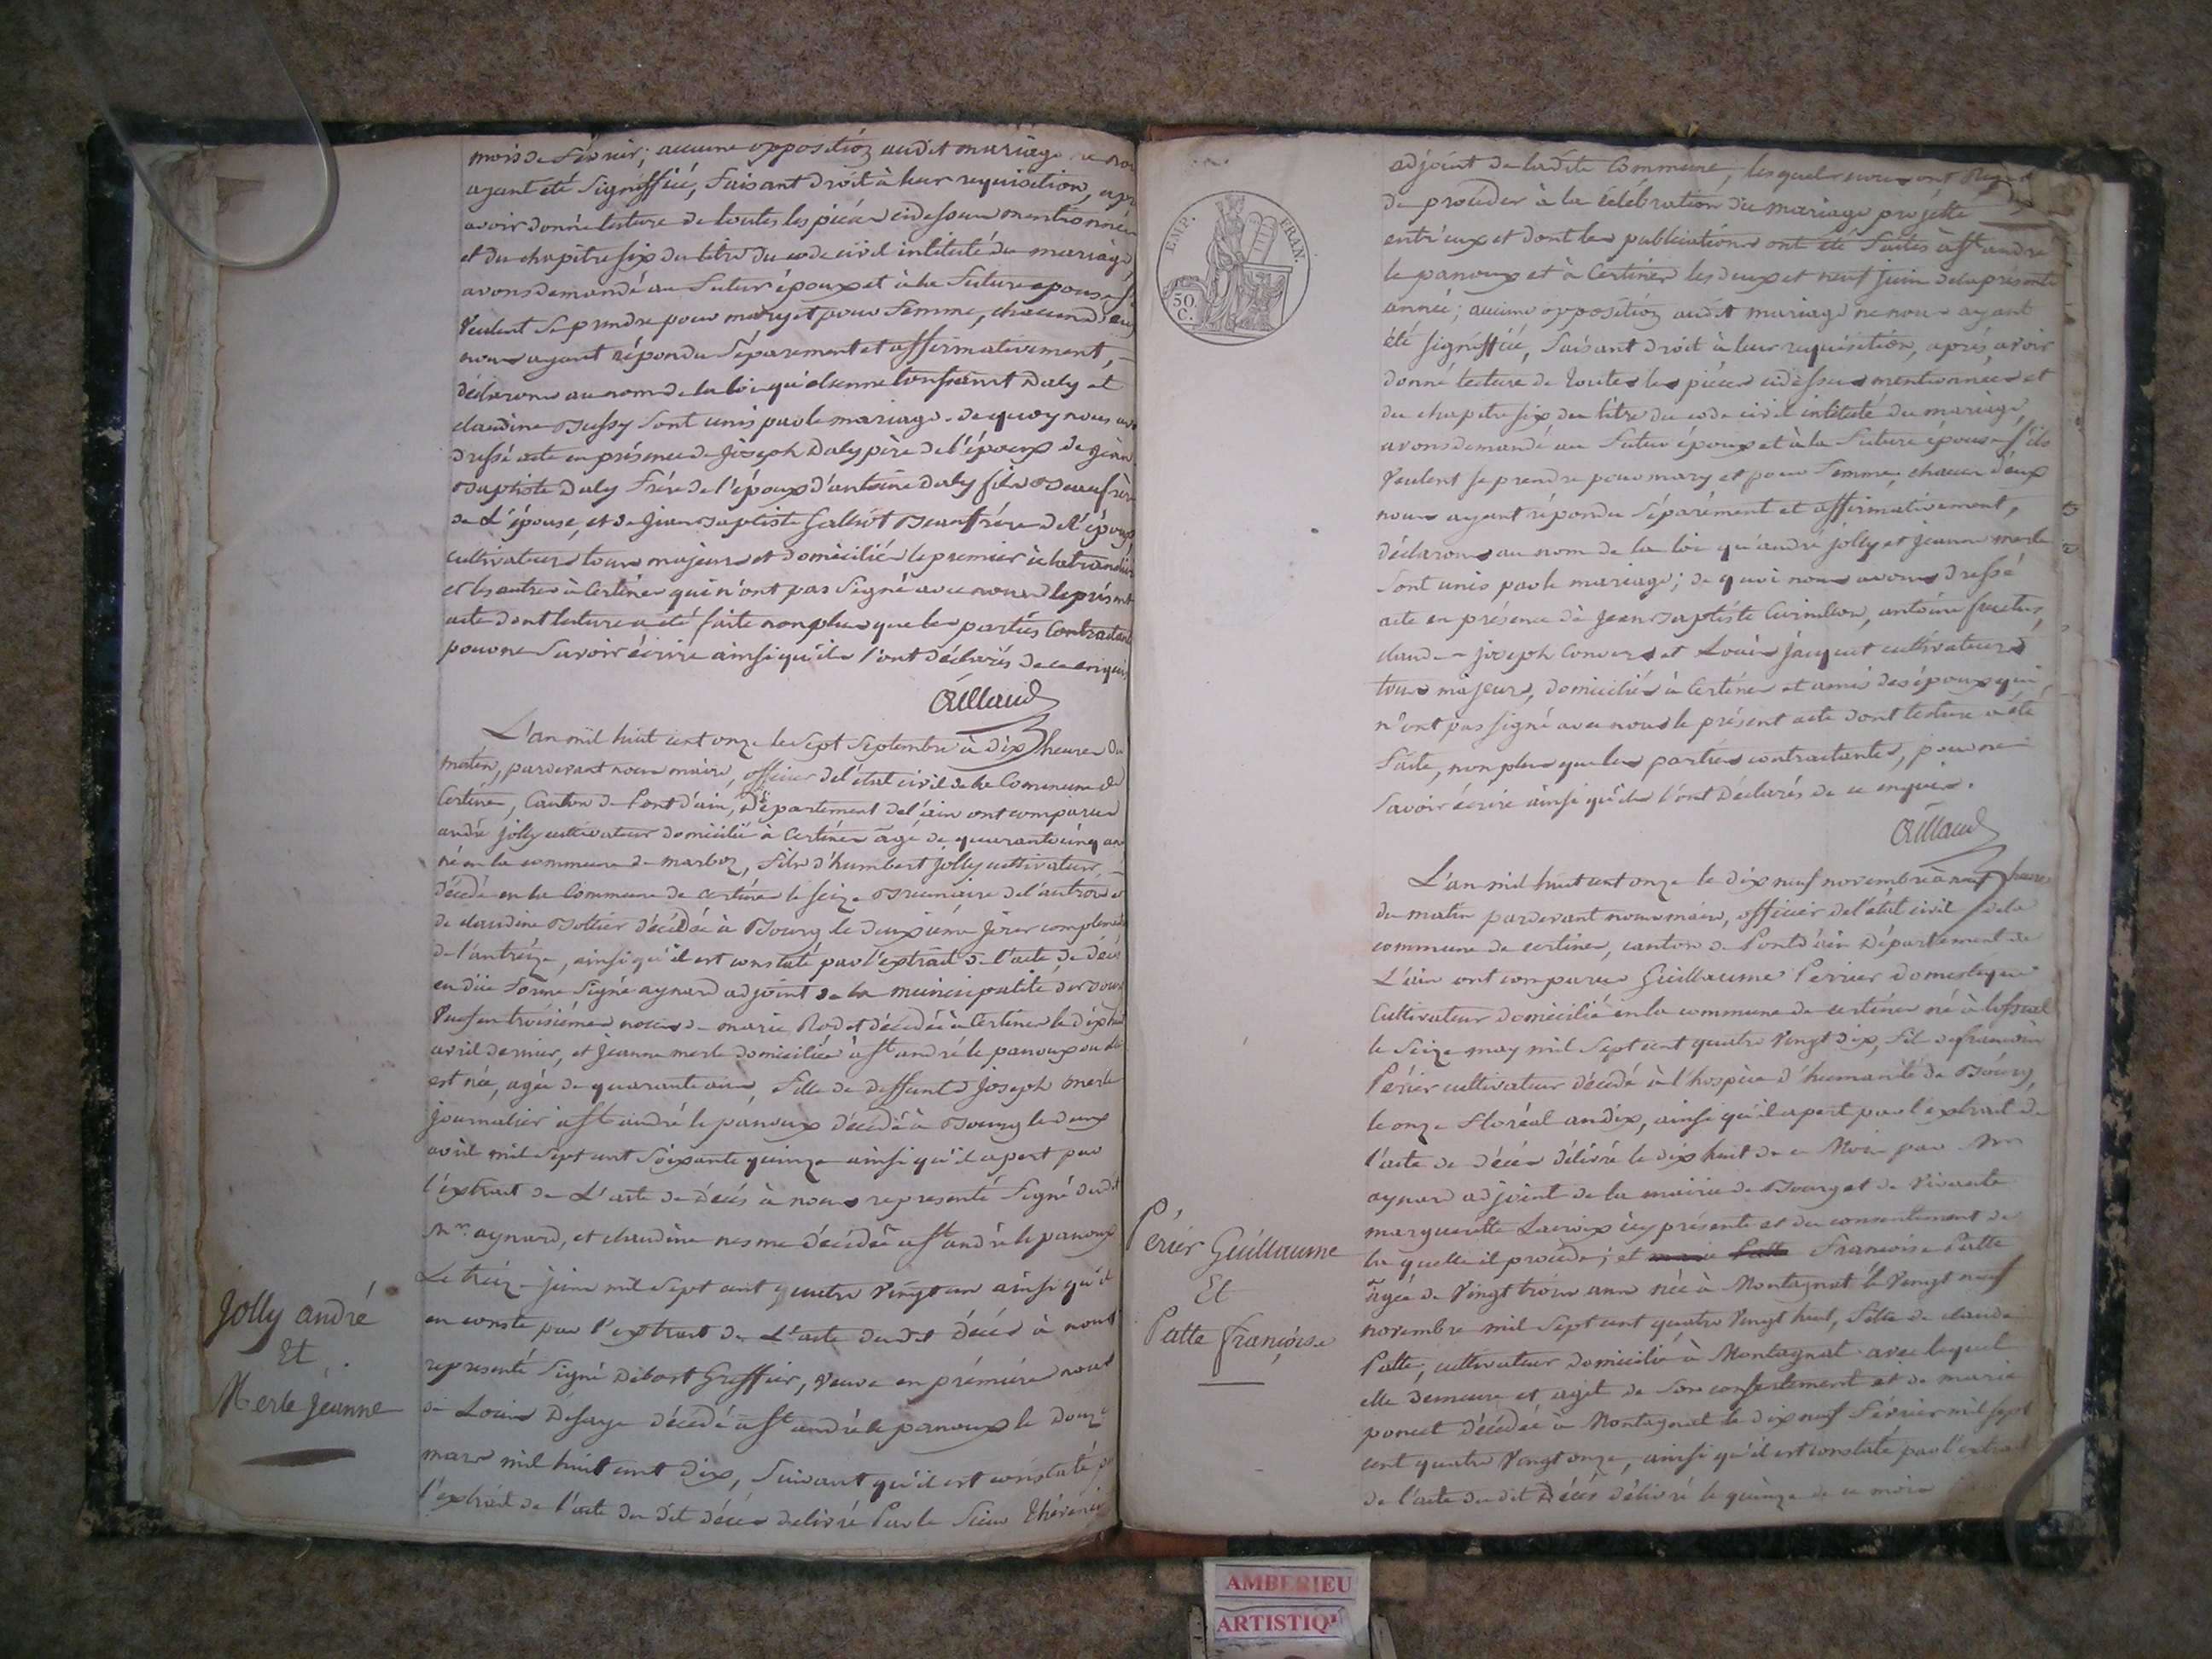 mois de février; aucune opposition audit mariage ne nous
ayant été signiffiée, faisant droit à leur requisition, apr
avoir donné lecture de toutes les pièces cidessus mentionnées
et du chapitre six du titre du code civil intitulé du mariage
avons demandé au futur époux et à la future epouse s'ils
veulent se prendre pour mary et pour femme, chacun d'eux
nous ayant répondu séparement et affirmativement,
déclarons au nom de la loi qu'etienne Daly et
claudine Bussy sont unis par le mariage. de quoy nous avons
dressé acte en présence de joseph Daly père de l'époux de jean
Baptiste Daly frère de l'époux d'antoine Daly fils Beaufrère
de L'épouse, et de jean Baptiste Beaufrère de l'époux
cultivateurs tous majeurs et domiciliés le premier à
et les autres à Certines qui n'ont pas signé avec nous le présent
acte dont lecture a été faite non plus que les parties contractantes
pour ne savoir écrire ainsi qu'ils l'ont déclarés de ce enquis
L'an mil huit cent onze le sept septembre à dix heures du
matin, pardevant nous maire, officier de l'état civil de la Commune de
Certines, Canton de Pont d'ain, Département de l'ain ont comparu
andré jolly cultivateur domicilié à Certines âgé de quarante cinq ans
né en la commune de marboz, fils d'humbert jolly cultivateur,
décédé en la Commune de certines le seize Brumaire de l'an trois et
de claudine Bottier décédée à Bourg le deuxième jour complémentaire
de l'an treize, ainsi qu'il est constaté par l'extrait de l'acte de décès
en due forme signé aynard adjoint de la municipalité de Bourg
veuf en troisièmes noces de marie Rodet décédée à Certines le dix huit
avril dernier, et jeanne merle domiciliée à st andré le panoux ou elle
est née, agée de quarante ans, fille de deffunt joseph merle
journalier à st andré le panoux décédé à Bourg le deux
avril mil sept cent soixante quinze ainsi qu'il apert par
l'extrait de L'acte de décès à nous representé signé dudit
Mr. aynard, et claudine nesme décédée à st andré le panoux
Le treize juin mil sept cent quatre vingt un ainsi qu'il
en conste par l'extrait de L'acte dudit décès à nous
representé signé Debost Greffier, veuve en première noces
de Louis Desaye décédé à st andré le panoux le douze
mars mil huit cent dix, suivant qu'il est constaté par
l'extrait de l'acte du dit décès delivré Par le Sieur Thévenin
Jolly andré
Et
Merle jeanne
EMP. FRAN.
50
C.
adjoint de ladite Commune, lesquels nous ont requis
de procéder à la célébration du mariage projetté
entr'eux et dont les publications ont été faites à st andré
le panoux et à Certines les deux et neuf juin de la présente
année; aucune opposition audit mariage ne nous ayant
été signiffiée, faisant droit à leur requisition, après avoir
donné lecture de toutes les pièces cidessus mentionnées et
du chapitre six du titre du code civil intitulé du mariage
avons demandé au futur époux et à la future épouse s'ils
veulent se prendre pour mary et pour femme, chacun d'eux
nous ayant répondu séparément et affirmativement,
déclarons au nom de la loi qu'andré jolly et jeanne merle
sont unis par le mariage; de quoi nous avons dressé
acte en présence de jean Baptiste antoine
claude joseph Convers et Louis jacquet cultivateurs
tous majeurs, domiciliés à Certines et amis des époux qui
n'ont pas signé avec nous le présent acte dont lecture a été
faite, non plus que les parties contractantes, pour ne
savoir écrire ainsi qu'ils l'ont déclarés de ce enquis.
L'an mil huit cent onze le dix neuf novembre à neuf heures
du matin pardevant nous maire, officier de l'état civil de la
commune de certines, canton de Pont d'ain Département de
L'ain ont comparu Guillaume Perrier domestique
Cultivateur domicilié en la commune de certines né à
le seize may mil sept cent quatre vingt dix, fils de françois
Périer cultivateur décédé à l'hospice d'humanité de Bourg,
le onze floréal an dix, ainsi qu'il apert par l'extrait de
l'acte de décès délivré le dix huit de ce Mois par Mr
aynard adjoint de la mairie de Bourg et de vivante
marguerite Lacroix icy présente et du consentement de
la quelle il procède; et Francoise Patte
âgée de vingt trois ans née à Montagnat le vingt neuf
novembre mil sept cent quatre vingt huit, fille de claude
Patte, cultivateur domicilié à Montagnat avec lequel
elle demeure et agit de son consentement et de marie
poncet décédée à Montagnat le dix neuf février mil sept
cent quatre vingt onze, ainsi qu'il est constaté par l'extrait
de l'acte du dit Décès délivré le quinze de ce mois
Périer Guillaume
Et
Patte françoise
AMBERIEU
ARTISTIQU